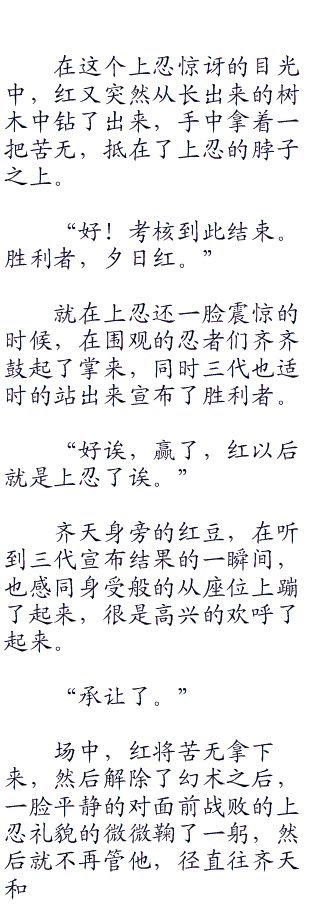 在这个上忍惊讶的目光
中，红又突然从长出来的树
木中钻了出来，手中拿着一
把苦无，抵在了上忍的脖子
之上。
“好！考核到此结束。
胜利者，夕日红。”
就在上忍还一脸震惊的
时候，在围观的忍者们齐齐
鼓起了掌来，同时三代也适
时的站出来宣布了胜利者。
“好诶，赢了，红以后
就是上忍了诶。”
齐天身旁的红豆，在听
到三代宣布结果的一瞬间，
也感同身受般的从座位上蹦
了起来，很是高兴的欢呼了
起来。
“承让了。”
场中，红将苦无拿下
来，然后解除了幻术之后，
一脸平静的对面前战败的上
忍礼貌的微微鞠了一躬，然
后就不再管他，径直往齐天
和